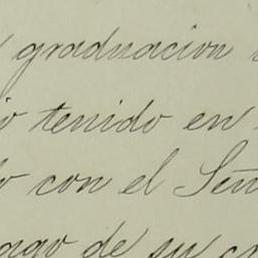 graduacion
tenido en
con el Señ
de su